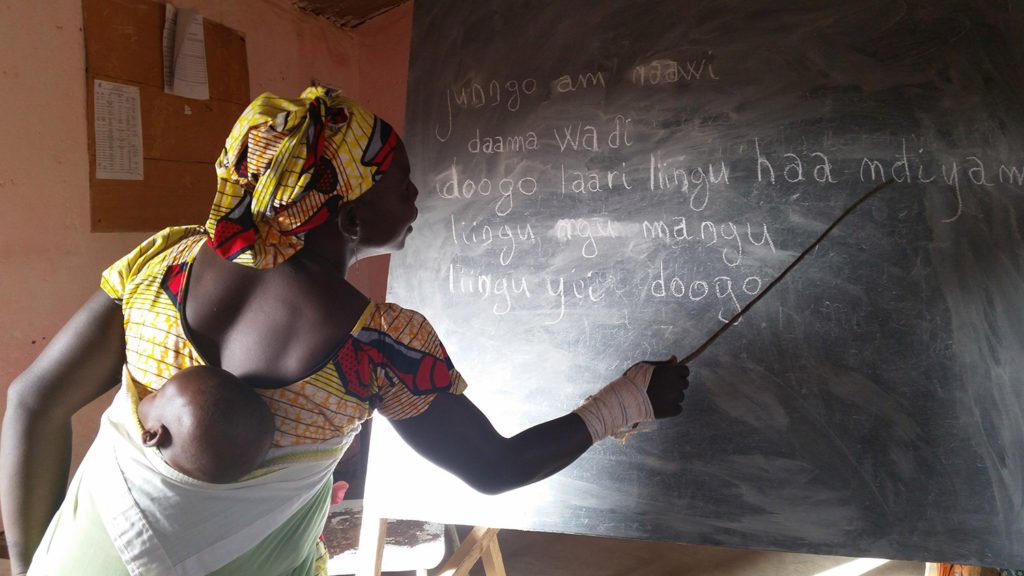 juŋŋgo am naawi
daama wadi
doogo laari liingu haa ndiyam
liingu ngu mangu
liingu yii doogo